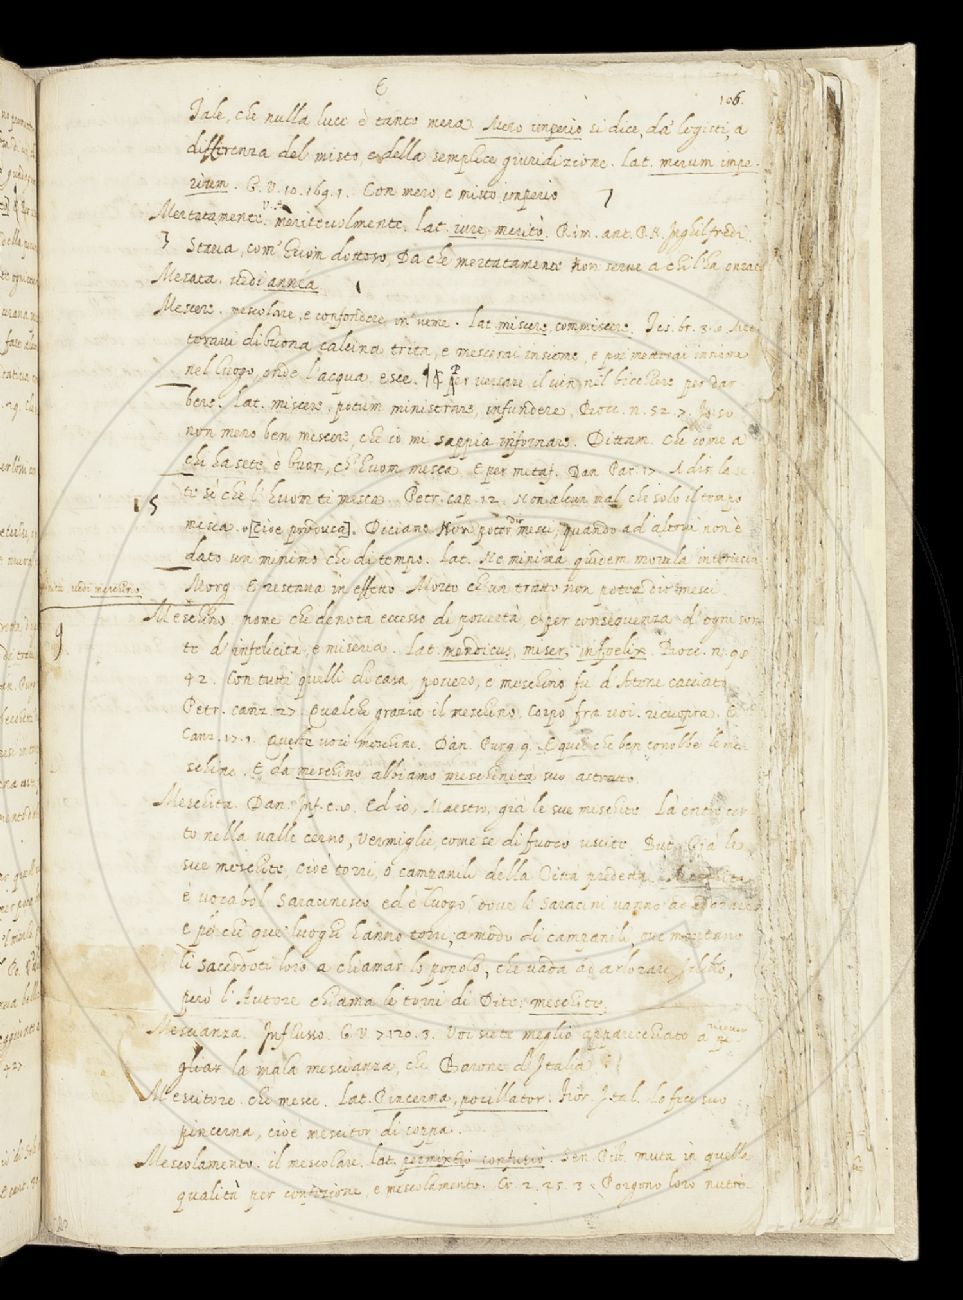 E
106.
Tale, che nulla luce è tanto mera. Mero imperio si dice, da legisti, a
differenza del misto, e della semplice giuridizione. Lat. merum impe-
rium. G. V. 10. 169. 1. Con mero, e misto imperio
Mertatamente. meritevolmente. Lat. iure, meritò. Rim. ant. P. N. Inghilfredi
Stava, com' huom dottoso, Da che mertatamente Non serve a chi l'ha onrato
Mesata. vedi annata
Mescere. mescolare, e confondere insieme. Lat. miscere, commiscere.
torrai di buona calcina trita, e mescerai insieme, e poi metterai insieme
nel luogo, onde l'acqua esce. Per versare il vin nel bicchiere per dar
bere. Lat. miscere, potum ministrare, infundere. Bocc. n. 52. 7. Io so
non meno ben mescere, che io mi sappia infornare. Dittam. che come a
chi ha sete, è buon, ch'huom mesca. E per metaf. Dan. Par. 17. A dir la se-
te sè che l'huom ti mesca. Petr. can. 12. Non alcun mal, che solo il tempo
15
mesca. [cioè produca]. Diciamo Non poter dir mesci, quando ad altrui non è
dato un minimo che di tempo. Lat. Ne minima quidem morula
Morg. E restava in effetto Morto ch'un tratto non potea dir mesci.
vedi meschino
Meschino. nome che denota eccesso di povertà, e per conseguenza d'ogni sor-
9
te d'infelicità, e miseria. Lat. mendicus, miser, infoelix. Bocc. n. 98.
42. Con tutti quelli di casa povero, e meschino fu d'Atene cacciato
Petr. canz. 27. Qualche grazia il meschino, Corpo fra voi ricuopra. E
Canz. 17. 1. queste voci meschine. Dan. Purg. 9. E quei che ben conobbe le me-
schine. E da meschino abbiamo meschinità suo astratto.
Meschita. Dan. Inf. c. 8. Ed io, Maestro, già le sue meschite Là entro cer-
to nella valle cerno, Vermiglie, come se di fuoco uscite But. Già le
sue meschite, cioè torri, o campanili della Città predetta.
è vocabol Saracinesco ed è luogo, dove li Saracini vanno ad adorare
e perchè que' luoghi hanno torri, a modo di campanili, ove montano
li sacerdoti loro a chiamar lo popolo, che vada ad adorare Iddio,
però l'Autore chiama le torri di Dite: meschite.
Mescianza. Influsso. G. V. 7. 120. 3. Voi siete meglio apparecchiato a
gliar la mala mescianza, che Barone d'Italia
Mescitore. che mesce. Lat. Pincerna, pocillator. Fior. Ital. lo fece suo
pincerna, cioè mescitor di coppa.
Mescolamento. il mescolare. Lat. permixtio confusio. Sen. Pist. muta in quella
qualità per confezione, e mescolamento. Cr. 2. 25. 3. Porgono loro nutro-